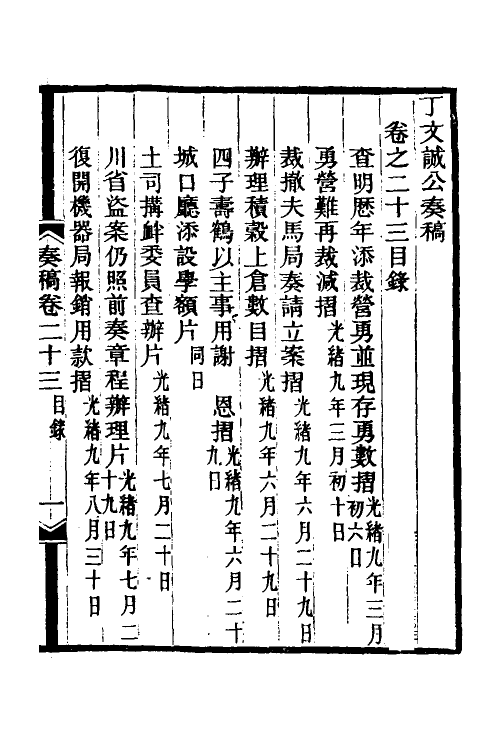 丁文誠公奏稿
卷之二十三目錄
查明歷年添裁營勇並現存勇數摺光緒九年三月初六日
勇營難再裁減摺光緒九年三月初十日
裁撤夫馬局奏請立案摺光緒九年六月二十九日
辦理積穀上倉數目摺光緒九年六月二十九日
四子壽鶴以主事用謝 恩摺光緒九年六月二十九日
城口廳添設學額片同日
土司搆衅委員查辦片光緒九年七月二十日
川省盜案仍照前奏章程辦理片光緒九年七月二十九日
復開機器局報銷用款摺光緒九年八月三十日
奏稿卷二十三 目錄 一